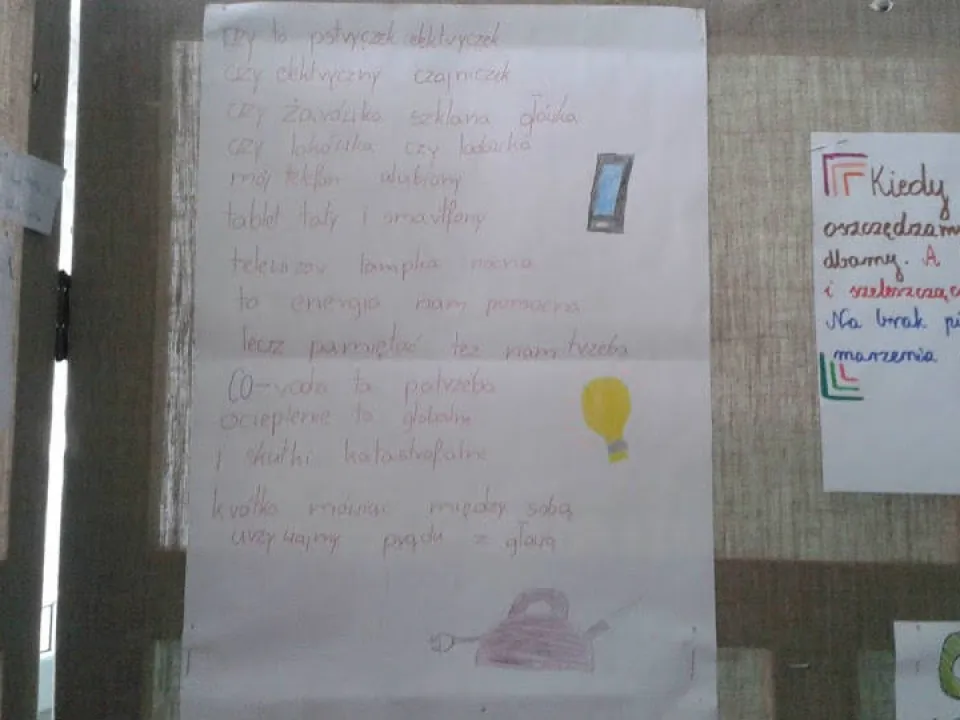 czy to pstryczek elektryczek
czy elektryczny czajniczek
czy żarówka szklana główka
czy lokówka czy lodówka
mój telefon ulubiony
tablet taty i smartfony
telewizor lampka nocna
to energia nam pomocna
lecz pamiętać też nam trzeba
CO-woda ta potrzeba
ocieplenie to globalne
i skutki katastrofalne
krótko mówiąc między sobą
używajmy prądu z głową
Kiedy
oszczędzam
dbamy. A
i szeleszczące
Na brak
marzenia